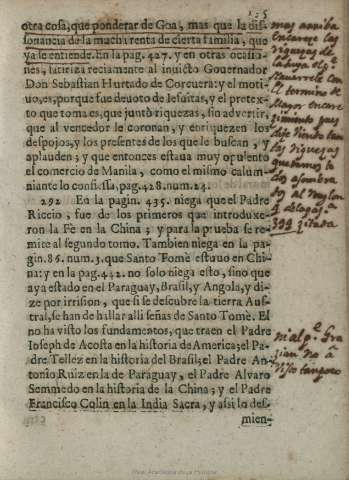 135
otra cosa, que ponderar de Goa, mas que la dis-
sonancia de la mucha renta de cierta familia, que
ya le entiende. En la pag. 427. y en otras ocasio-
nes, latiriza reciamente al invicto Governador
Don Sebastian Hurtado de Corcuera: y el moti-
vo, es, porque fue devoto de Iesuitas, y el pretex-
to que toma es, que juntò riquezas, sin advertir,
que al vencedor le coronan, y enriquezen los
despojos, y los presentes de los que le buscan, y
aplauden; y que entonces estaua muy opulento
el comercio de Manila, como el mismo calum-
niante lo confiessa, pag. 428. num. 24.
292 En la pagin. 435. niega que el Padre
Riccio, fue de los primeros que introduxe-
ron la Fè en la China; y para la prueba se re-
mite al segundo tomo. Tambien niega en la pa-
gin. 86. num. 3. que Santo Tomè estuuo en Chi-
na: y en la pag. 432. no solo niega esto, sino que
aya estado en el Paraguay, Brasil, y Angola, y di-
ze por irrision, que si se descubre la tierra Aus-
tral, se han de hallar alli señas de Santo Tomè. El
no ha visto los fundamentos, que traen el Padre
Ioseph de Acosta en la historia de America; el Pa-
dre Tellez en la historia del Brasil; el Padre An-
tonio Ruiz en la de Paraguay, el Padre Alvaro
Semmedo en la historia de la China; y el Padre
Francisco Colin en la India Sacra, y assi lo des-
mien-
mas arriba
encarece las
riquezas de
Mayor encare
las riquezas
399 citada
ni al pe. Gra